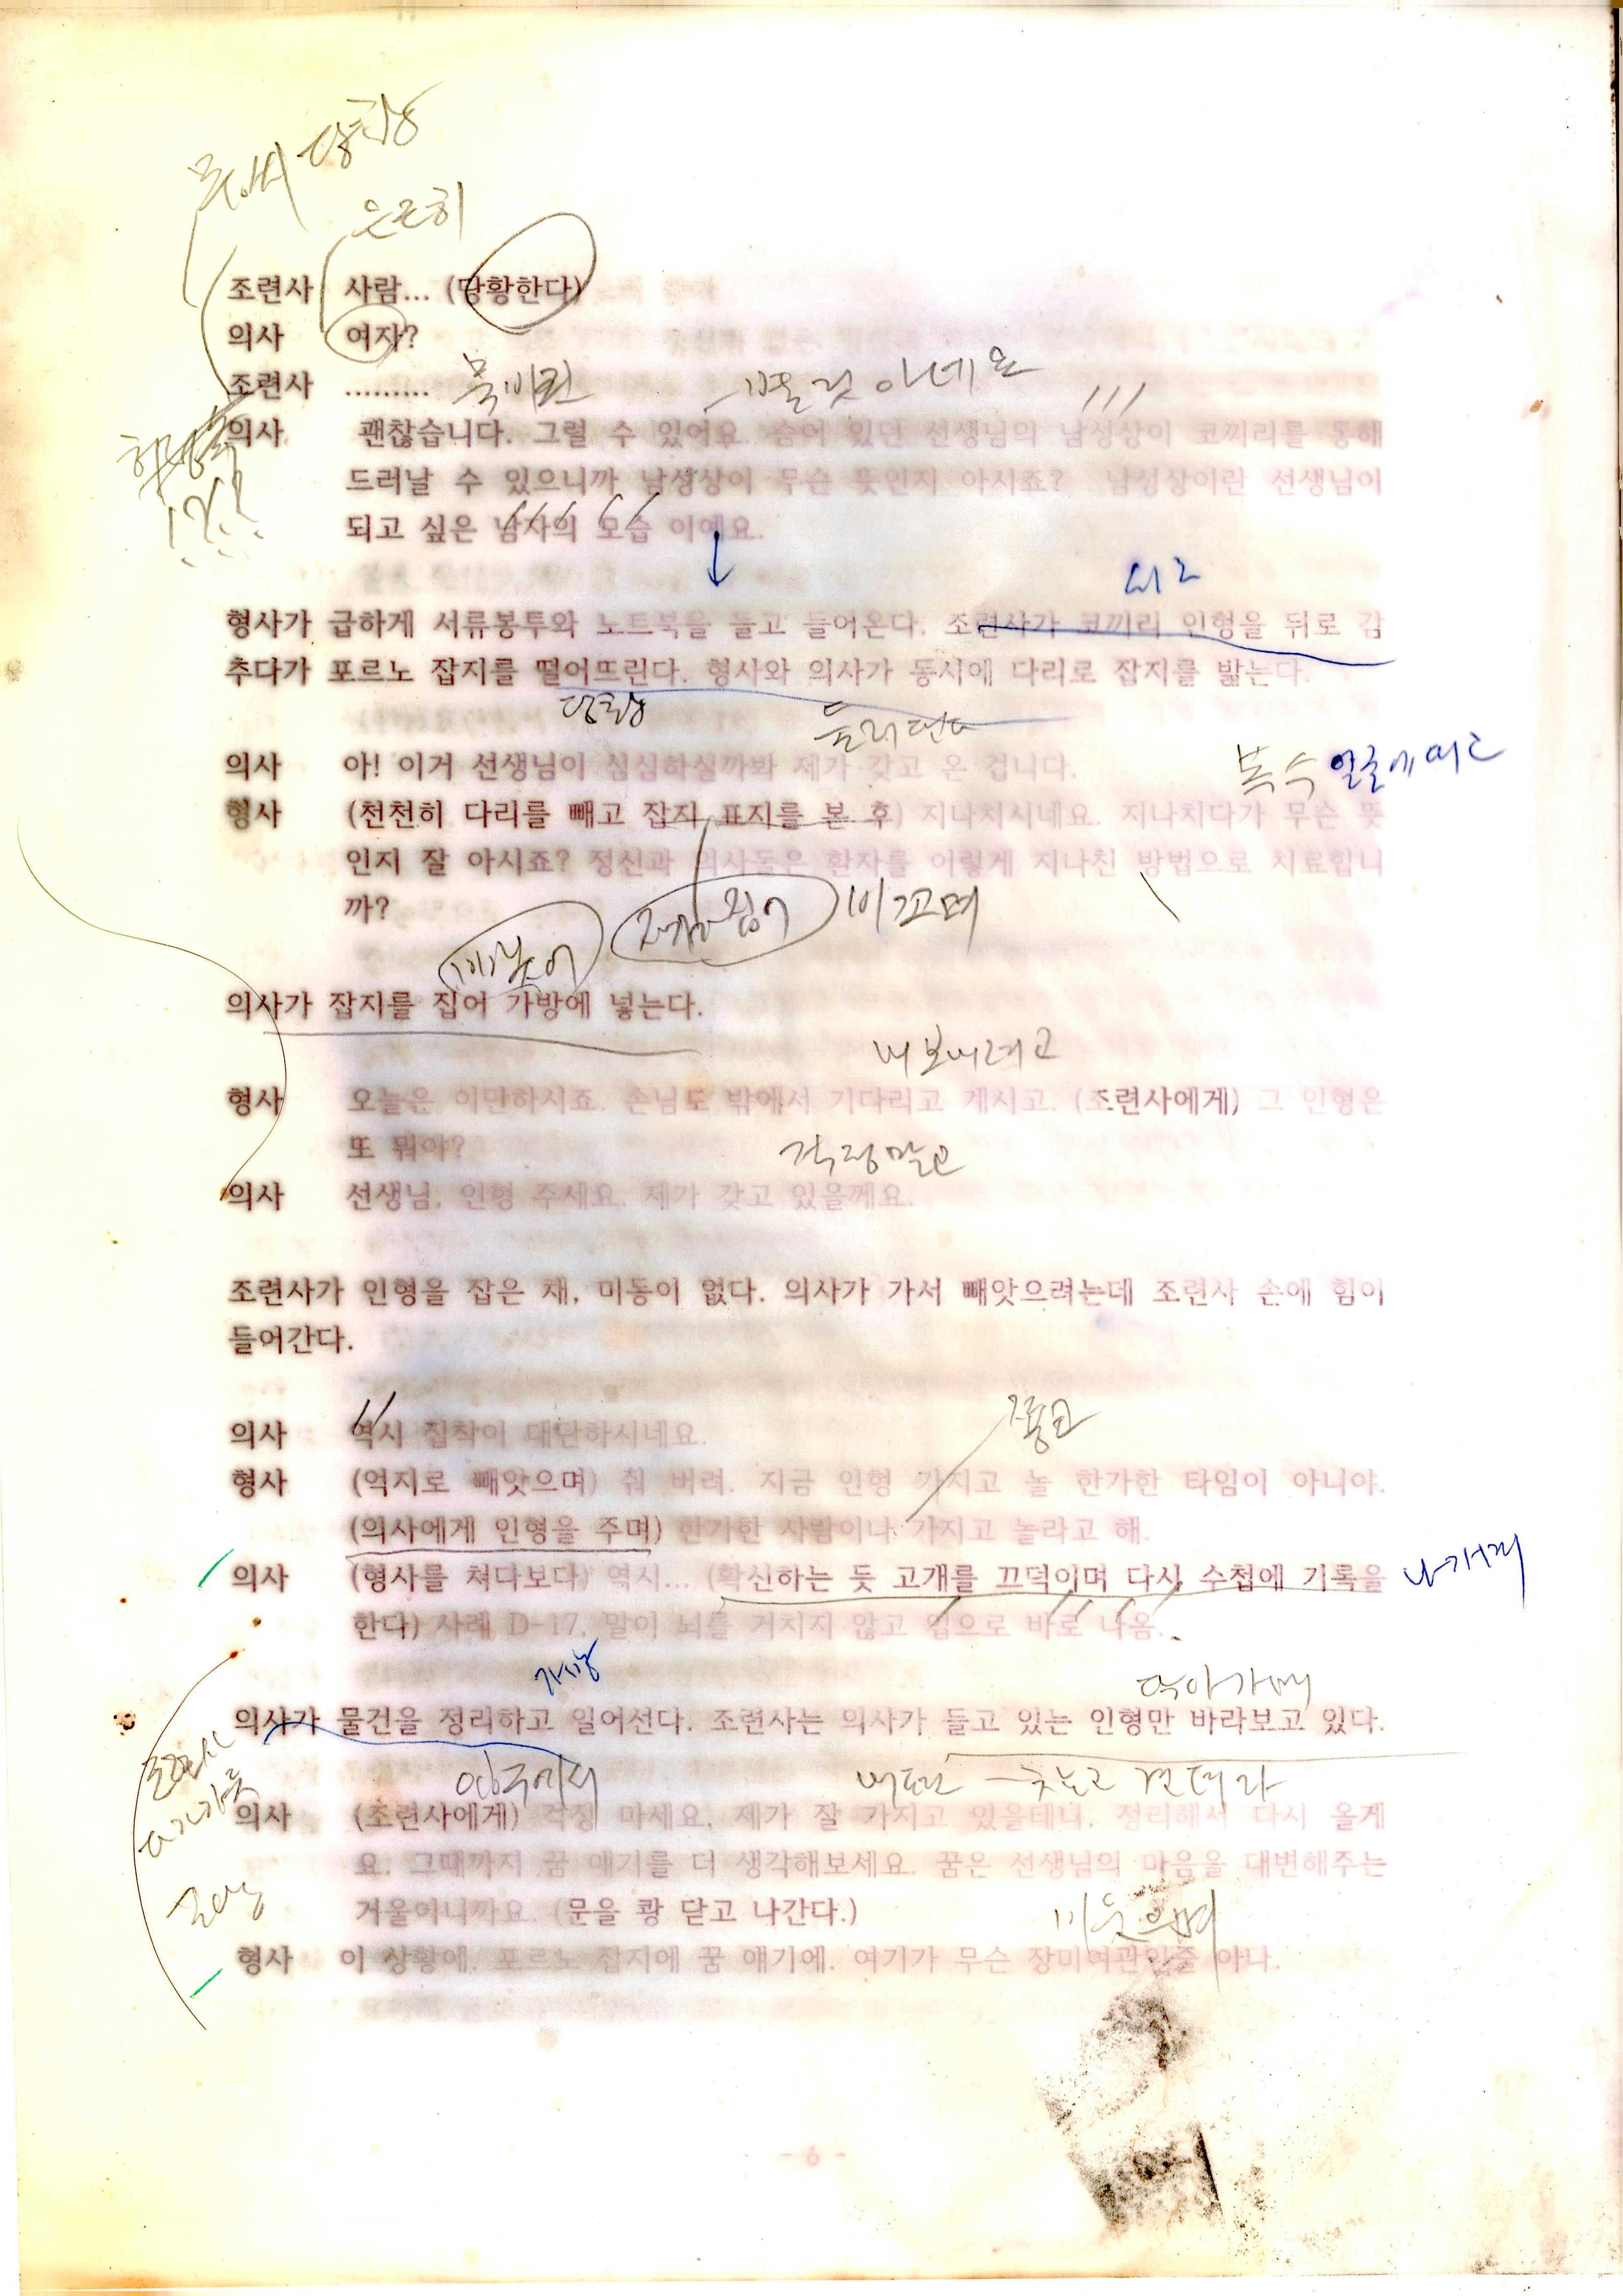 당황
은근히
조련사 사람... (당황한다)
의사 여자?
조련사 .........
별것 아네요
의사 괜찮습니다. 그럴 수 있어요. 숨어 있던 선생님의 남성상이 코끼리를 통해
드러날 수 있으니까 남성상이 무슨 뜻인지 아시죠? 남성상이란 선생님이
되고 싶은 남자의 모습 이에요.
형사가 급하게 서류봉투와 노트북을 들고 들어온다. 조련사가 코끼리 인형을 뒤로 감
추다가 포르노 잡지를 떨어뜨린다. 형사와 의사가 동시에 다리로 잡지를 밟는다.
당황
의사 아! 이거 선생님이 심심하실까봐 제가 갖고 온 겁니다.
형사 (천천히 다리를 빼고 잡지 표지를 본 후) 지나치시네요. 지나치다가 무슨 뜻
인지 잘 아시죠? 정신과 의사들은 환자를 이렇게 지나친 방법으로 치료합니
까?
비꼬며
의사가 잡지를 집어 가방에 넣는다.
내보내려고
형사 오늘은 이만하시죠. 손님도 밖에서 기다리고 계시고. (조련사에게) 그 인형은
또 뭐야?
걱정말고
의사 선생님, 인형 주세요. 제가 갖고 있을께요.
조련사가 인형을 잡은 채, 미동이 없다. 의사가 가서 빼앗으려는데 조련사 손에 힘이
들어간다.
의사 역시 집착이 대단하시네요.
형사 (억지로 빼앗으며) 줘 버려. 지금 인형 가지고 놀 한가한 타임이 아니야.
(의사에게 인형을 주며) 한가한 사람이나 가지고 놀라고 해.
의사 (형사를 쳐다보다) 역시... (확신하는 듯 고개를 끄덕이며 다시 수첩에 기록을
한다) 사례 D-17. 말이 뇌를 거치지 않고 입으로 바로 나옴.
가방
다가가며
의사가 물건을 정리하고 일어선다. 조련사는 의사가 들고 있는 인형만 바라보고 있다.
의사 (조련사에게) 걱정 마세요. 제가 잘 가지고 있을테니. 정리해서 다시 올게
요. 그때까지 꿈 얘기를 더 생각해보세요. 꿈은 선생님의 마음을 대변해주는
거울이니까요. (문을 쾅 닫고 나간다.)
비웃으며
형사 이 상황에. 포르노 잡지에 꿈 얘기에. 여기가 무슨 장미여관인줄 아나.
- 6 -